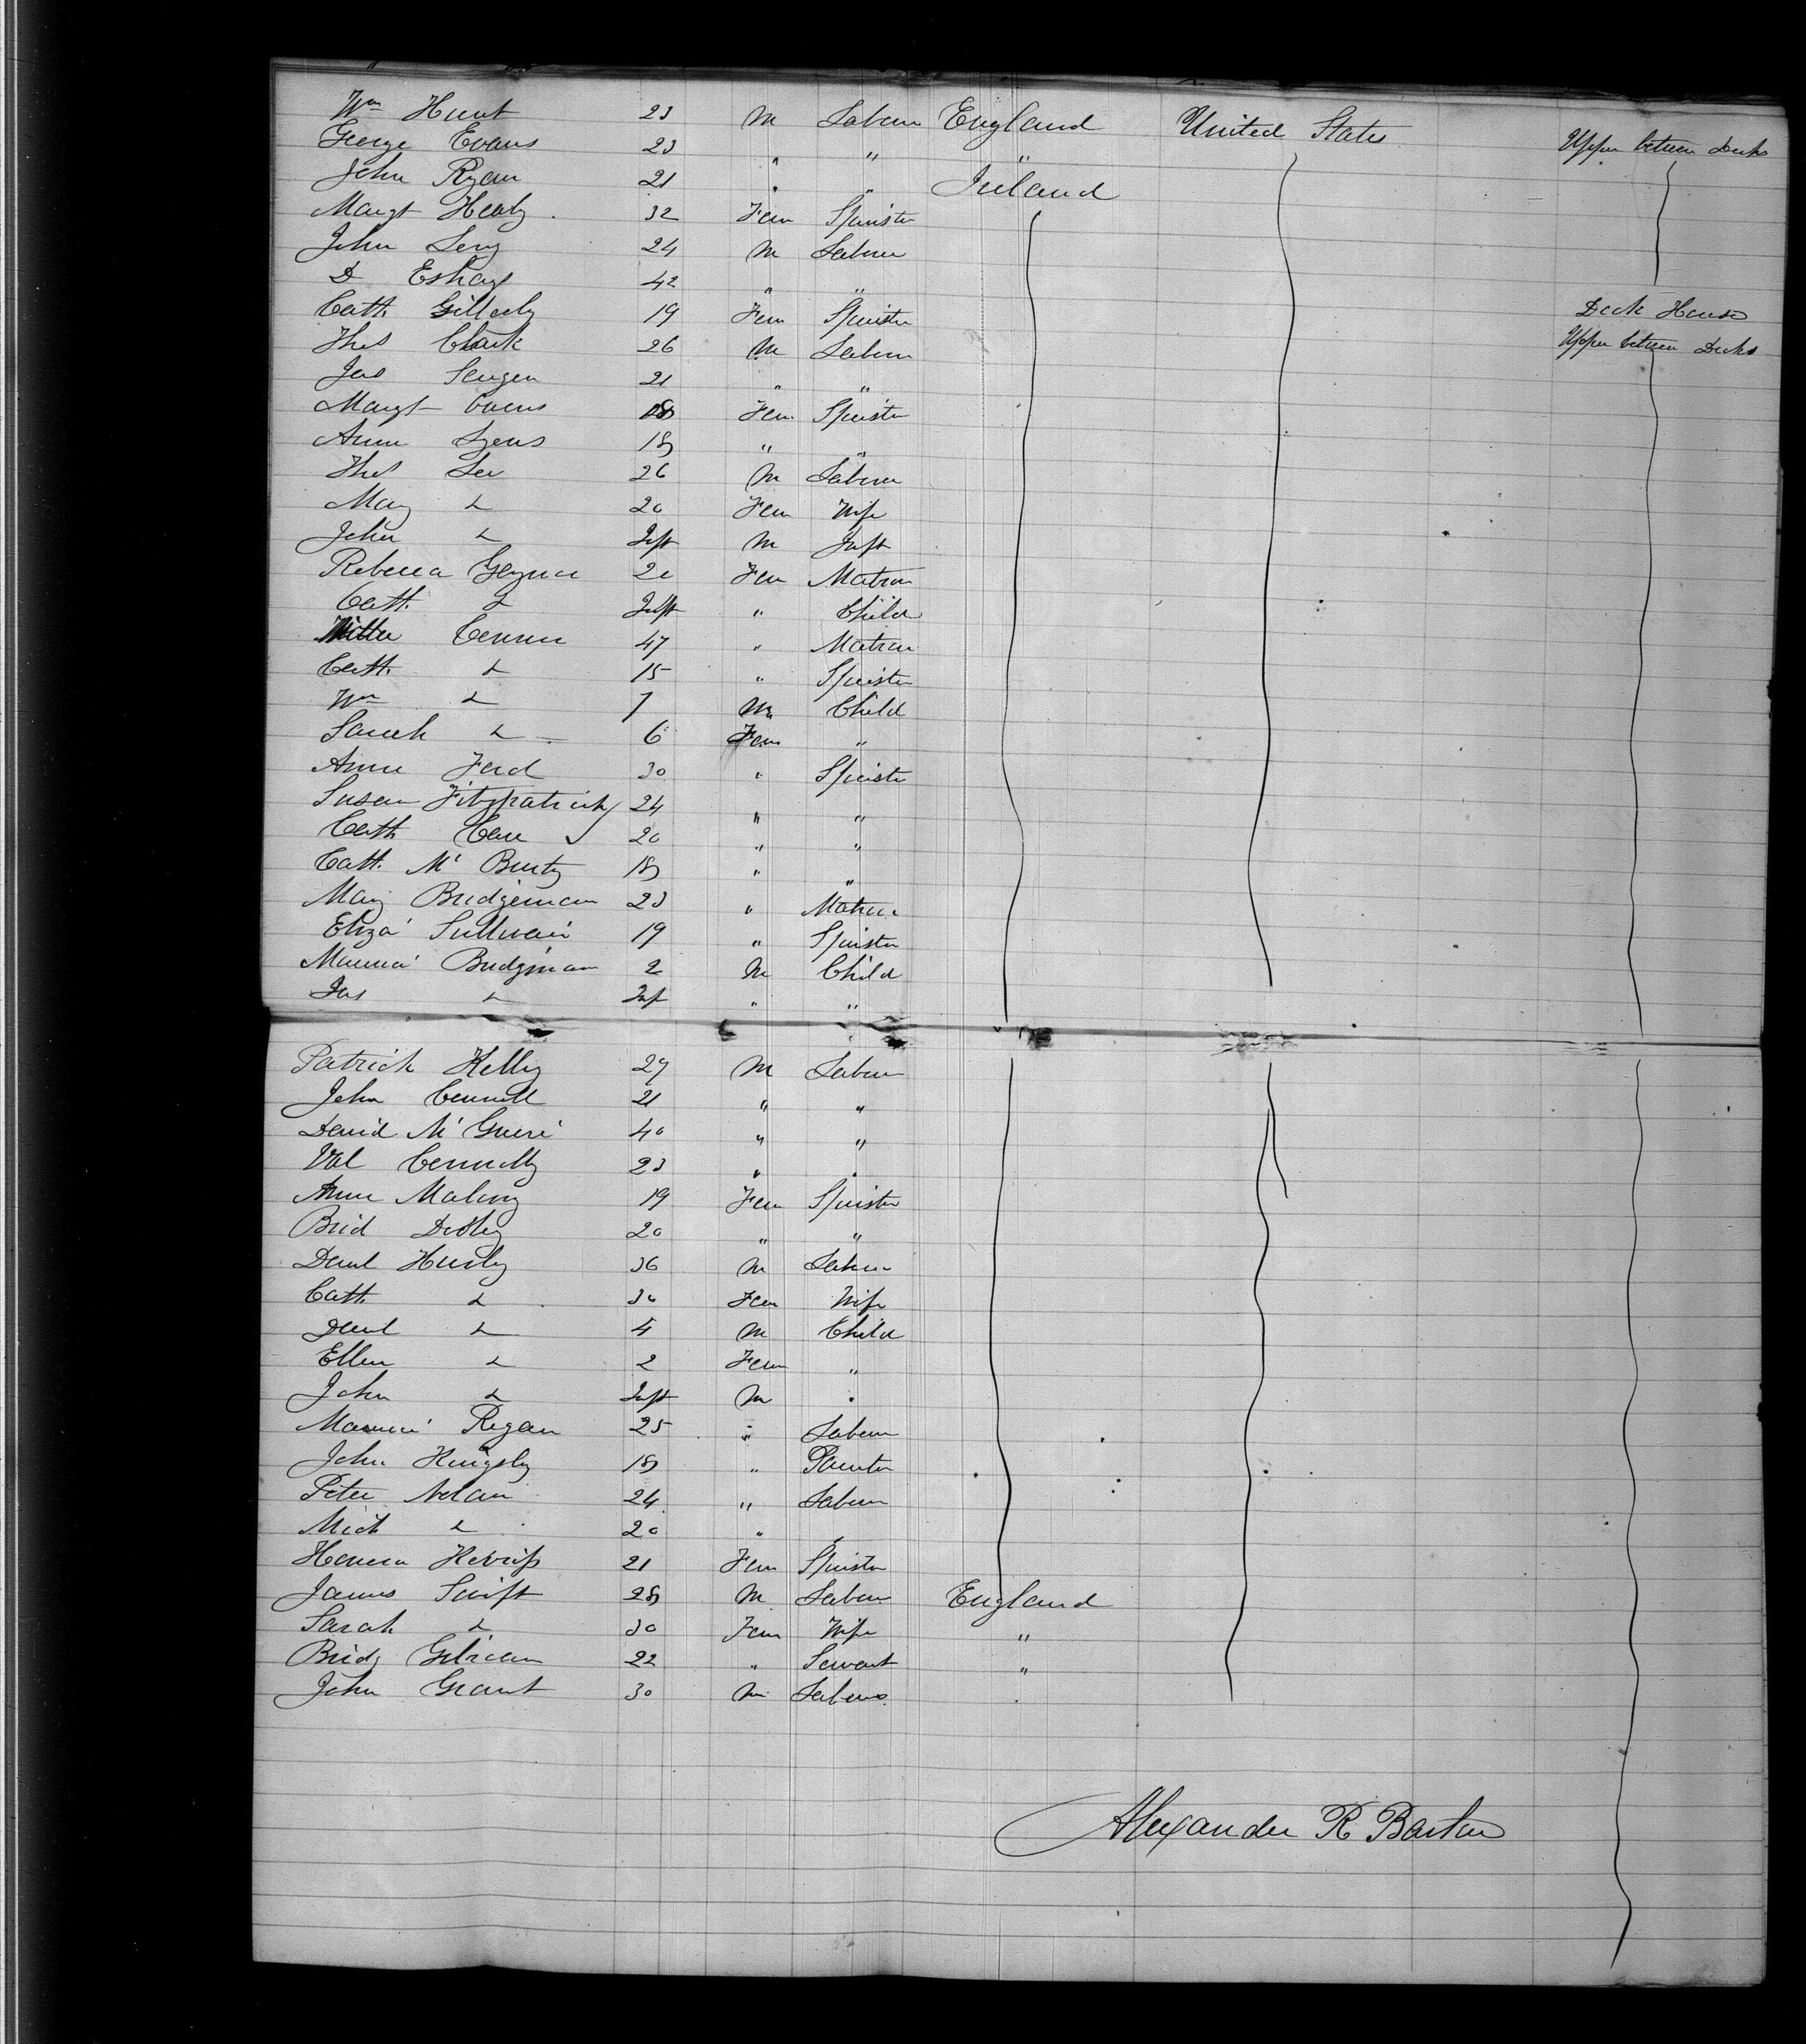 Wm Hunt 23 M Laborer England United States Upper between Decks
George Evans 23 " " "
John Ryan 21 " " Ireland
Margt Healy 32 Fem Spinster
John Leny 24 M Laborer
D 42 " "
Cath. 19 Fem Spinster Deck House
Thos Clark 26 M Laborer Upper between Decks
Jas 21 " "
Margt Owens 18 Fem Spinster
Anne Lyons 18 " "
Thos Lee 26 M Laborer
Mary Do 20 Fem Wife
John Do Inft M Inft
Rebecca 20 Fem Matron
Cath. Do Inft " Child
Connor 47 " Matron
Cath. Do 15 " Spinster
Wm Do 7 M Child
Sarah Do 6 Fem "
Anne Ford 30 " Spinster
Susan Fitzpatrick 24 " "
Cath 20 " "
Cath. Mc 18 " "
Mary Bridgeman 23 " Matron
Eliza Sullivan 19 " Spinster
Maurice Bridgman 2 M Child
Jas Do Inf " "
Patrick Kelly 27 M Laborer
John Connell 21 " "
David McGuire 40 " "
Val Connolly 23 " "
Anne Malony 19 Fem Spinster
Brid 20 " "
Danl Hurly 36 M Laborer
Cath. Do 30 Fem Wife
Danl Do 4 M Child
Ellen Do 2 Fem "
John Do Inft M "
Maurice Regan 25 " Laborer
John Kingsly 18 " Painter
Peter Nolan 24 " Laborer
Mich Do 20 " "
Honora 21 Fem Spinster
James Swift 28 M Laborer England
Sarah Do 30 Fem Wife "
Bridg 22 " Servant "
John Grant 30 M Laborer "
Alexander R Barton